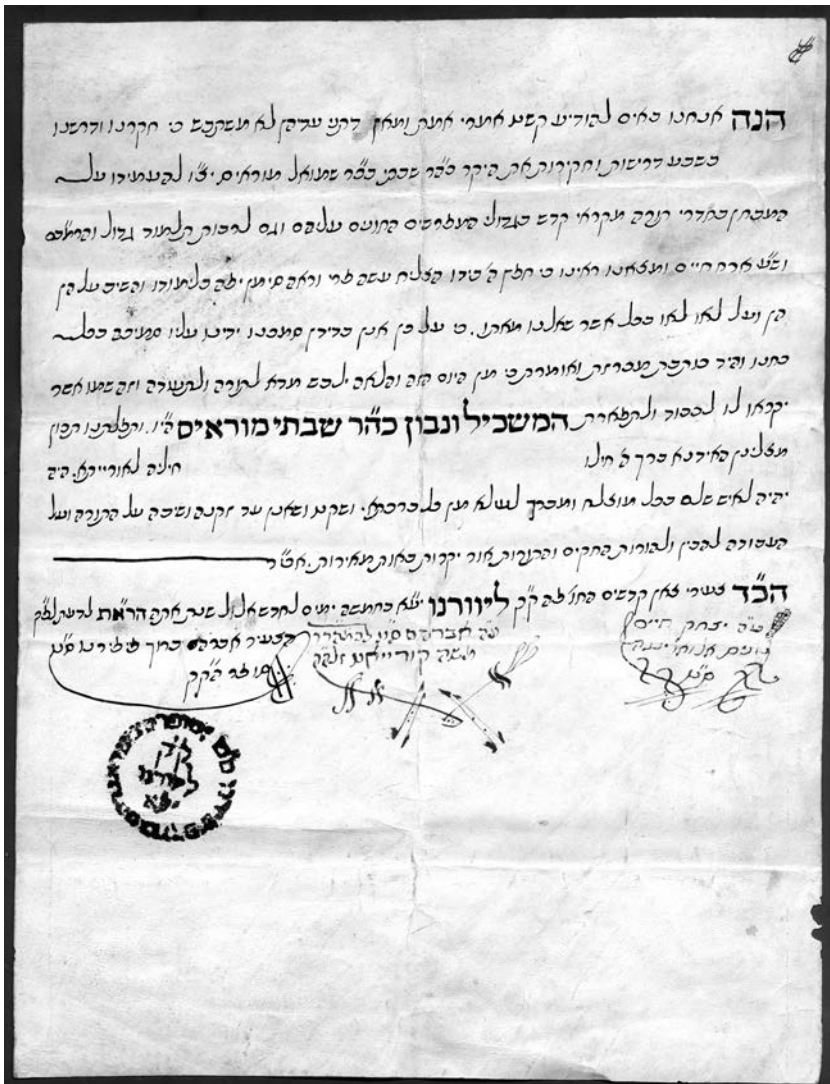 הנה אנחנו באים להודיע קשט אמרי אמת ומאן דהני עדיהן לא משקבש כי חקרנו ודרשנו
בשבע דרישות וחקירות את היקר כה״ר שבתי בכ״ר שמואל מוראים יצ״ו להעמידו על
המבחן בחדרי תורה מקראי קדש בגדולי המפרשים החונים עליהם וגם לרבות תלמוד גדול והרמב״ם
וש״ע ארח חיים ומצאנו ראינו כי חפץ ה׳ בידו הצליח עשה פרי וראה סימן יפה בלימודו והשיב על הן
הן ועל לאו לאו בכל אשר שאלנו מאתו. כי על כן אנן בדידן סמכנו ידינו עליו סמיכה בכל
כחנו והיד כותבת מכרזת ואומרת כי מן היום הזה והלאה ילבש מדא לתורה ולתעודה וזה שמו אשר
יקראו לו לכבוד ולתפארת המשכיל ונבון כה״ר שבתי מוראים הי״ו. ותפלתנו תכון
מצלינן האידנא ברך ה׳ חילו חיליה לאורייתא. היה
יהיה לאיש שלם בכל מוצלח ומבורך לעילא מן כל ברכתא. ושקט ושאנן עד זקנה ושיבה על התורה ועל
העבודה להבין ולהורות החקים והתורות אור יקרות באות מאירות. אכי״ר
הכ״ד צעירי צאן קדשים החו״פ פה ק״ק ליוורנו יע״א בחמשה ימים לחדש אלול שנת אתה הראת לדעת לפ״ק
ע״ה יצחק חיים
ס״ט
ע״ה אברהם
משה קורייאט
הצעיר אברהם ברוך פיפירנו ס״ט
סופר הק״ק
ק״ק
ליוורנו
יע״א